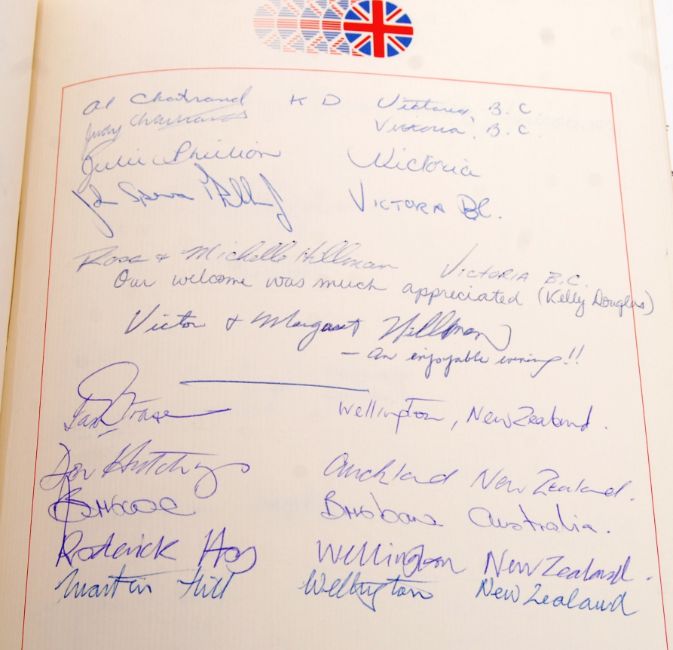 Al Chatrand K D Victoria, B.C.
Judy Victoria, B.C.
Julie Victoria
VICTORIA BC.
Rose & Michelle Hillman VICTORIA B.C.
Our welcome was much appreciated (Kelly Douglas)
Victor & Margaret Hillman
— An enjoyable evening!!
Ian Fraser Wellington, New Zealand.
Auckland New Zealand.
Brisbane Australia.
Roderick Wellington New Zealand.
Martin Hill Wellington New Zealand